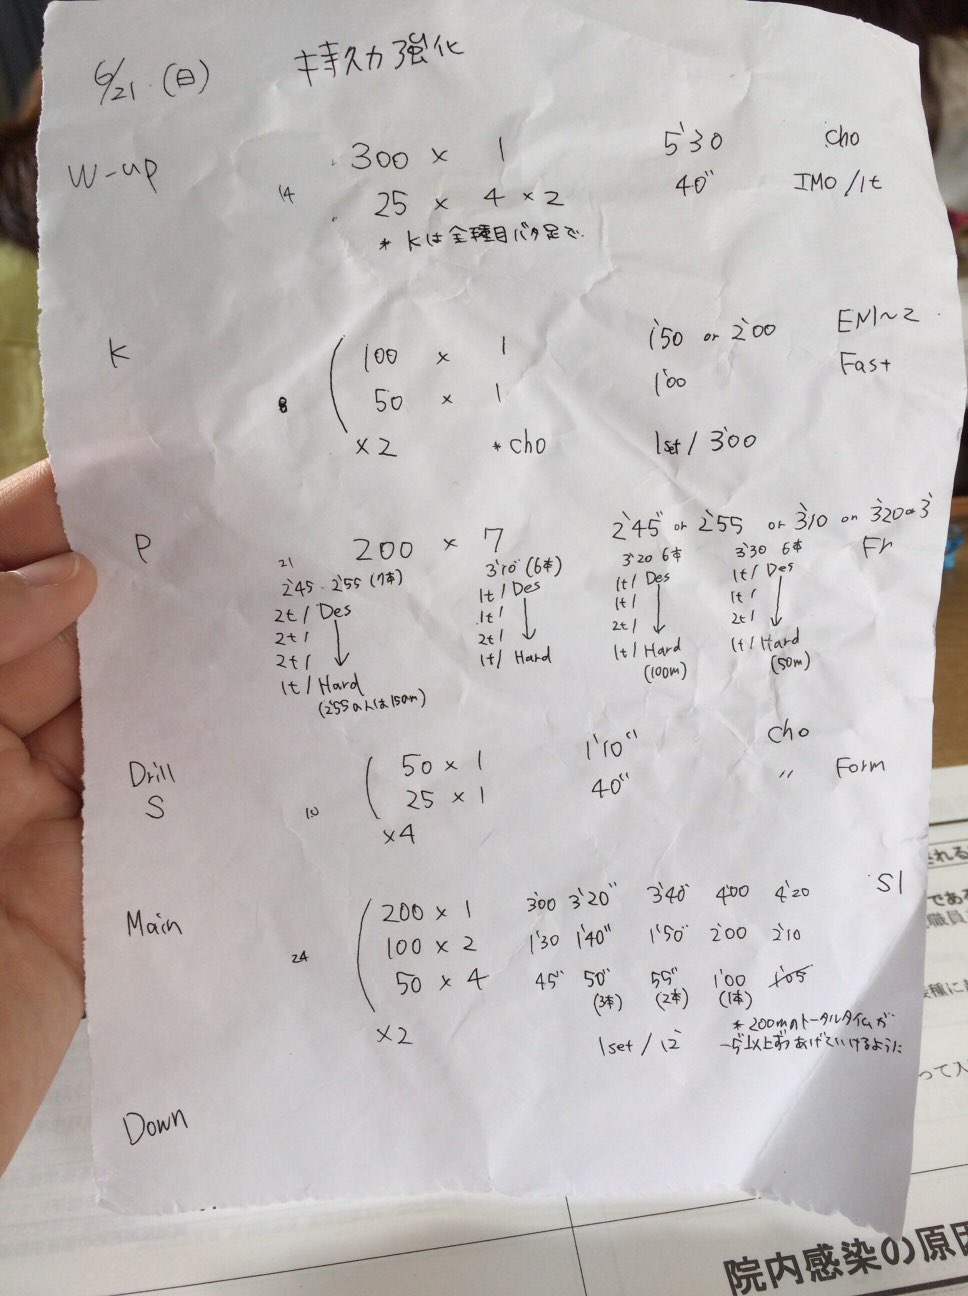 6/21.(日) 持久力強化
W-up 300 × 1 5'30 cho
14 25 × 4 × 2 40" IMO/1t
* Kは全種目バタ足で.
K 100 × 1 1'50 or 2'00 EN1~2
8 50 × 1 1'00 Fast
×2 *cho 1set/3'00
P 200 × 7 2'45" or 2'55 or 3'10 or 3'20 or 3' Fr
21
2'45. 2'55 (7本) 3'10" (6本) 3'20 6本 3'30 6本
2t/Des 1t/Des 1t/Des 1t/Des
2t/ 1t/ 1t/ 1t/
2t/ 2t/ 2t/ 2t/
1t/Hard 1t/Hard 1t/Hard 1t/Hard
(2'55の人は150m) (100m) (50m)
Drill 50 × 1 1'10" cho
S 10 25 × 1 40" 〃 Form
×4
Main 200 × 1 3'00 3'20" 3'40" 4'00 4'20 S1
24 100 × 2 1'30 1'40" 1'50" 2'00 2'10
50 × 4 45" 50" 55" 1'00 1'05
(3本) (2本) (1本)
×2 1set/12' * 200mのトータルタイムが
-5"以上ずつあげていけるように
Down
される
である
職員
種に
って入
院内感染の原因